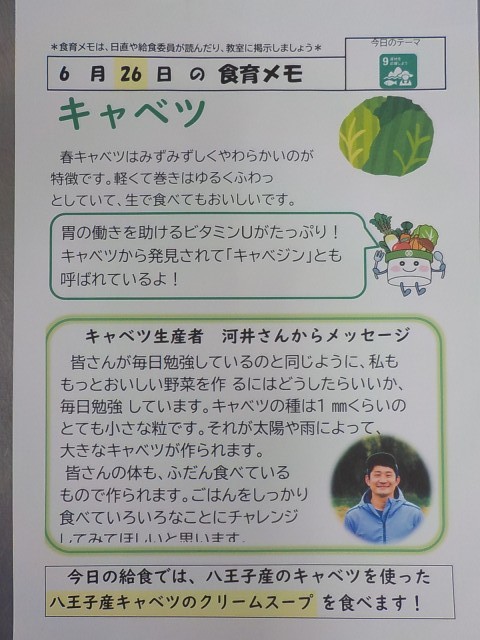 ＊食育メモは、日直や給食委員が読んだり、教室に掲示しましょう＊
今日のテーマ
6 月 26 日 の 食育メモ
9
キャベツ
春キャベツはみずみずしくやわらかいのが
特徴です。軽くて巻きはゆるくふわっ
としていて、生で食べてもおいしいです。
胃の働きを助けるビタミンUがたっぷり！
キャベツから発見されて「キャベジン」とも
呼ばれているよ！
キャベツ生産者 河井さんからメッセージ
皆さんが毎日勉強しているのと同じように、私も
もっとおいしい野菜を作 るにはどうしたらいいか、
毎日勉強 しています。キャベツの種は1 ㎜くらいの
とても小さな粒です。それが太陽や雨によって、
大きなキャベツが作られます。
皆さんの体も、ふだん食べている
もので作られます。ごはんをしっかり
食べていろいろなことにチャレンジ
してみてほしいと思います。
今日の給食では、八王子産のキャベツを使った
八王子産キャベツのクリームスープ を食べます！